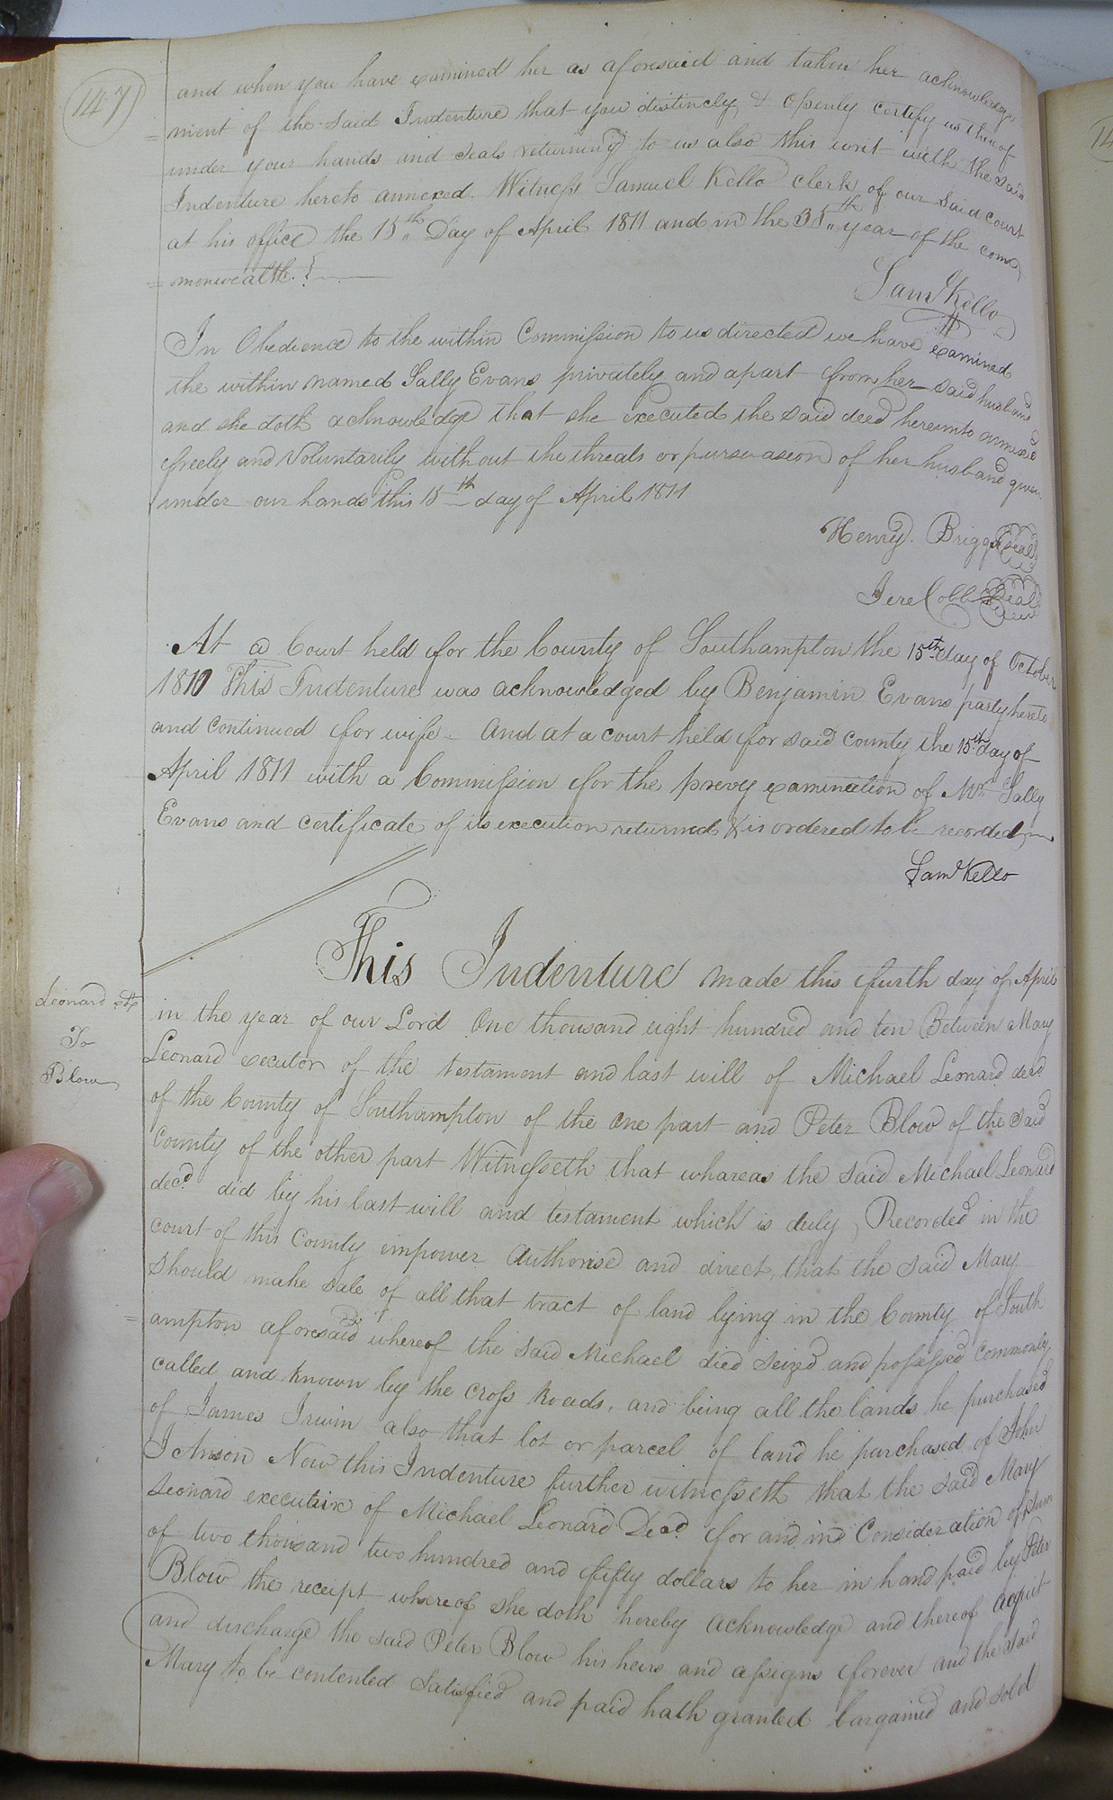 147
and when you have examined her as aforesaid and taken her acknowledge
= ment of the said Indenture that you distinctly & openly certify us thereof
under your hands and seals returning to us also this writ with the said
Indenture hereto annexed. Witness Samuel Kello clerk of our said court
at his office the 15th Day of April 1811 and in the 35th year of the com
= monwealth.
Saml Kello
In Obedience to the within Commission to us directed we have examined
the within named Sally Evans privately and apart from her said husband
and she doth acknowledge that she executed the said deed hereunto annexed
freely and voluntarily without the threats or pursuasion of her husband given
under our hands this 15th day of April 1811
Henry Briggs (seal)
Jere Cobb (seal)
At a Court held for the County of Southampton the 15th day of October
1810 This Indenture was acknowledged by Benjamin Evans party hereto
and continued for wife - And at a court held for said County the 15th day of
April 1811 with a Commission for the prevy examination of Mrs Sally
Evans and certificate of its execution returned & is ordered to be recorded
Saml Kello
This Indenture made this furth day of April
Leonard
To
Blow
in the year of our Lord One thousand eight hundred and ten Between Mary
Leonard executor of the testament and last will of Michael Leonard decd
of the County of Southampton of the one part and Peter Blow of the said
County of the other part Witnesseth that whareas the said Michael Leonard
decd. did by his last will and testament which is duly Recorded in the
court of this County impower Authorise and direct, that the said Mary
should make sale of all that tract of land lying in the County of South
= ampton aforesaid whereof the said Michael died seized and possessed commonly
called and known by the cross Roads, and being all the lands he purchased
of James Irwin also that lot or parcel of land he purchased of John
J Anson Now this Indenture further witnesseth that the said Mary
Leonard executrix of Michael Leonard Decd for and in Consideration of sum
of two thousand two hundred and fifty dollars to her in hand paid by Peter
Blow the receipt whereof she doth hereby acknowledge and thereof acquit
and discharge the said Peter Blow his heirs and assigns forever and the said
Mary to be contented satisfied and paid hath granted bargained and sold